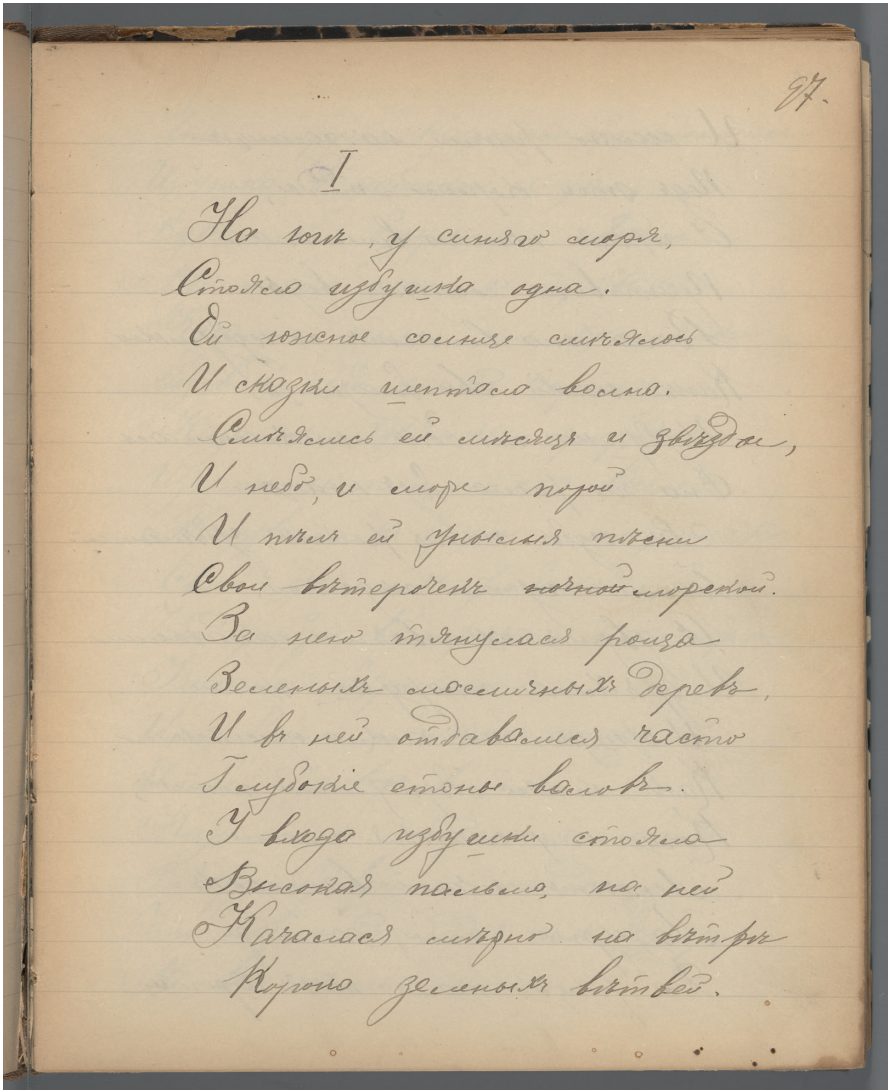 97.
I
На югѣ, у синяго моря,
Стояла избушка одна.
Ей южное солнце смѣялось
И сказки шептала волна.
Смѣялись ей мѣсяцъ и звѣзды,
И небо, и море порой
И пѣлъ ей унылыя пѣсни
Свои вѣтерочекъ ночной морской.
За нею тянулася роща
Зеленыхъ масличныхъ деревъ,
И въ ней отдавалися часто
Глубокіе стоны валовъ.
У входа избушки стояла
Высокая пальма, на ней
Качалася мѣрно на вѣтрѣ
Корона зеленыхъ вѣтвей.